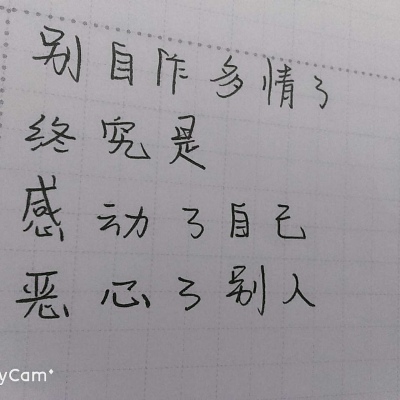 别自作多情了
终究是
感动了自己
恶心了别人
yCam+